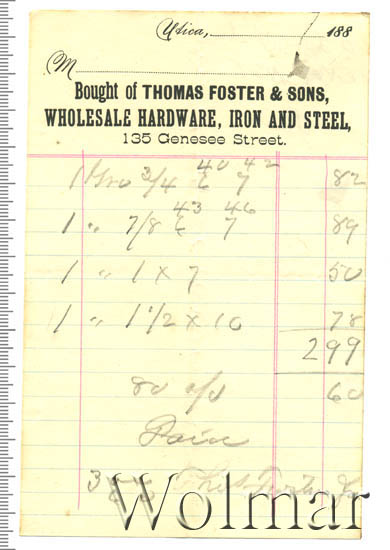 Utica, 188
M
Bought of THOMAS FOSTER & SONS,
WHOLESALE HARDWARE, IRON AND STEEL,
135 Genesee Street.
40 42
1 Gro 3/4 6 7 82
43 46
1 " 7/8 6 7 89
1 " 1 x 7 50
1 " 1 1/2 x 10 78
299
80 % 60
Paid
3
Wolmar